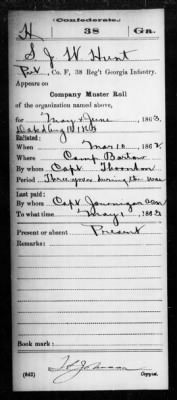 (Confederate.)
H 38 Ga.
S J W Hunt
Pvt, Co. F, 38 Reg't Georgia Infantry.
Appears on
Company Muster Roll
of the organization named above,
for May & June, 1863.
Enlisted:
When Mar 10, 1862
Where Camp Bartow
By whom Capt Thornton
Period Three years during the war
Last paid:
By whom Capt
To what time May 1, 1863
Present or absent Present
Remarks:
Book mark:
(642) Copyist.